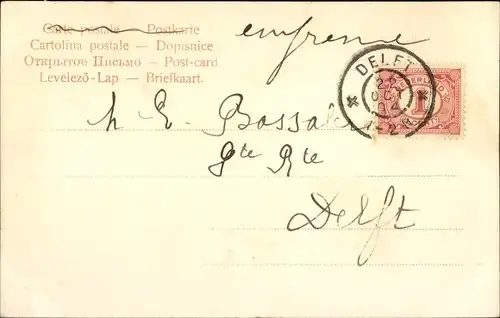 Carte postale — Postkarte
Cartolina postale — Dopisnice
Открытое Письмо — Post-card
Levelező-Lap — Briefkaart.
DELFT
22
OCT
04
1-2
NEDERLAND
h E. Bossa
Gte Rte
Delft